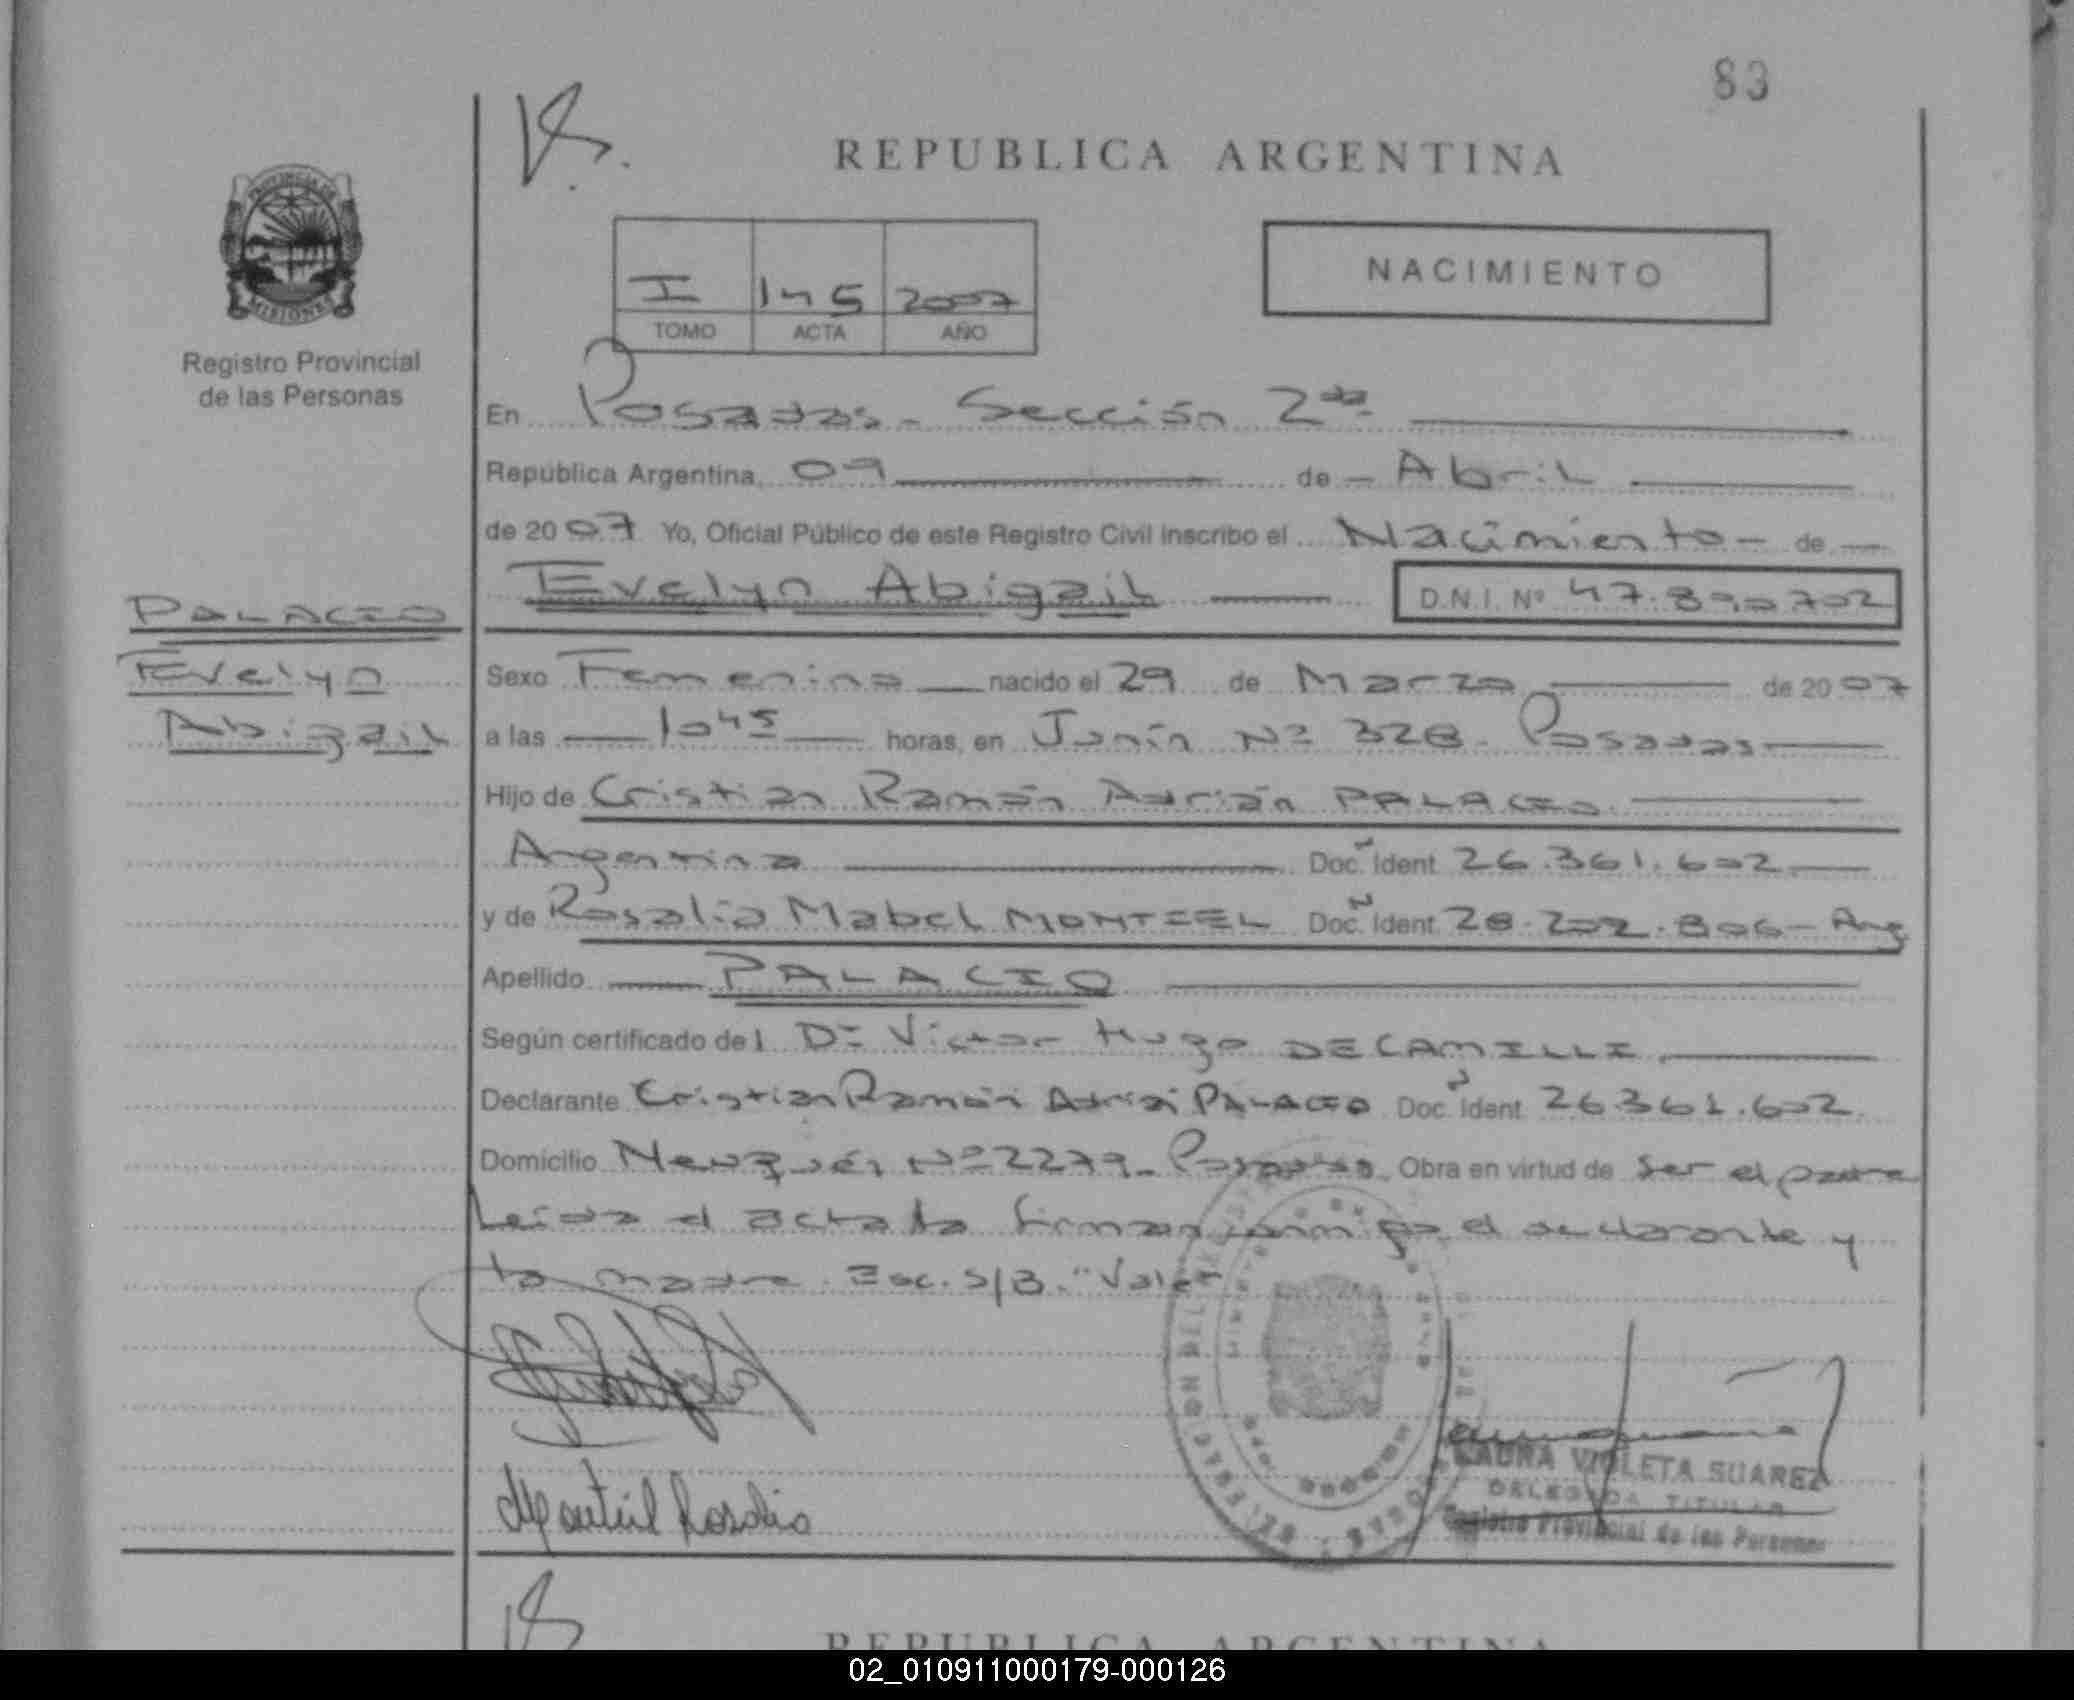 83
REPUBLICA ARGENTINA
PROVINCIA DE
MISIONES
Registro Provincial
de las Personas
I 145 2007
TOMO ACTA AÑO
NACIMIENTO
En Posadas - Sección 2da
República Argentina, 09 de Abril
de 2007 Yo, Oficial Público de este Registro Civil inscribo el Nacimiento de
Evelyn Abigail D.N.I. Nº 47.890702
PALACIO
Evelyn
Abigail
Sexo Femenino nacido el 29 de Marzo de 2007
a las 10 45 horas, en Junín Nº 328. Posadas
Hijo de Cristian Ramón Adrián PALACIO
Argentina Doc. Ident 26.361.602
y de Rosalia Mabel MONTIEL Doc. Ident 28.202.806 - Arg
Apellido PALACIO
Según certificado del Dr Victor Hugo DECAMILLI
Declarante Cristian Ramón Adrián PALACIO Doc. Ident 26361.602
Domicilio Neuquén Nº 2279 - Posadas Obra en virtud de ser el padre
Leida el acta la firman conmigo el declarante y
la madre. Esc. S/B. "Vale"
Montiel Rosalia
LAURA VIOLETA SUAREZ
DELEGADA TITULAR
Registro Provincial de las Personas
REPUBLICA ARGENTINA
02_010911000179-000126